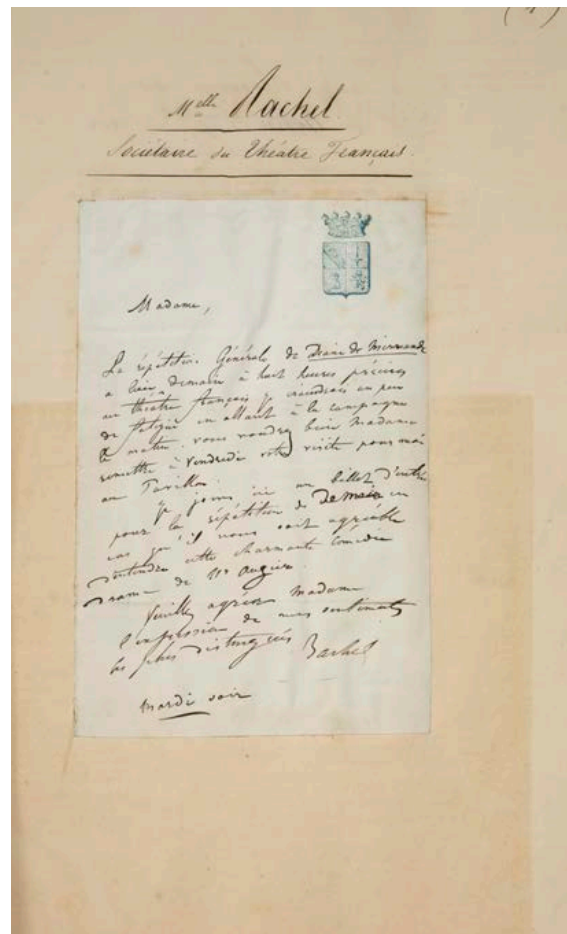 Mlle Rachel
Sociétaire du Théâtre Français.
Madame,
La répétition Générale de Diane de Mirmande
a lieu demain à huit heures précises
au théâtre français je viendrais un peu
en allant à la campagne
le matin, vous voudrez bien Madame
remettre à vendredi votre visite pour moi
au Pavillon.
Je joins ici un billet d'entrée
pour la répétition de demain en
cas qu'il vous soit agréable
d'entendre cette charmante comédie
drame de Mr Augier.
Veuillez agréer Madame
l'expression de mes sentiments
les plus distingués
Rachel
Mardi soir